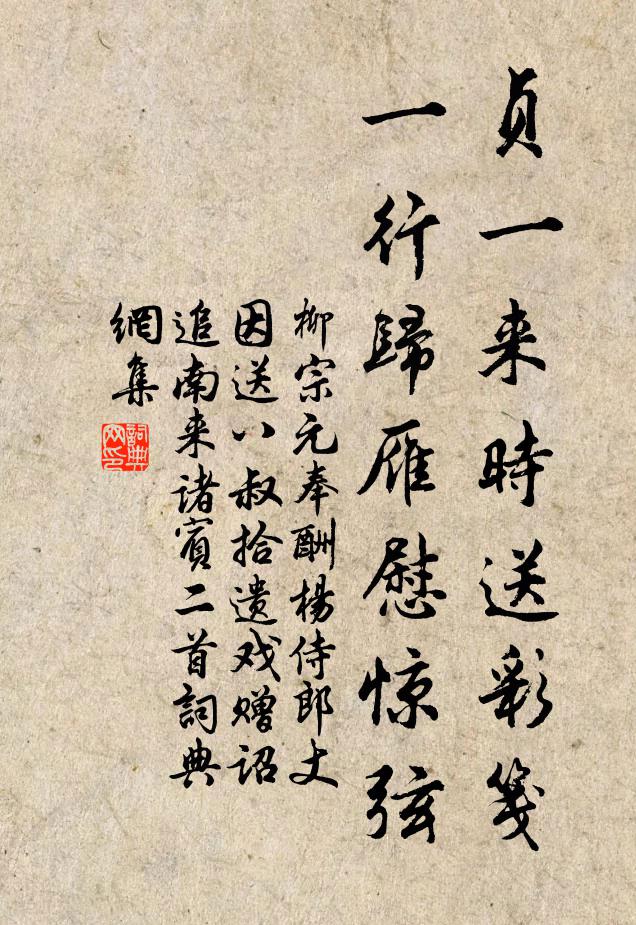 贞一来時送彩箋
一行歸雁慰惊弦
柳宗元奉酬楊侍郎丈
因送八叔拾遺戏赠诏
追南来诸賓二首詞典
網集
詞典
网印